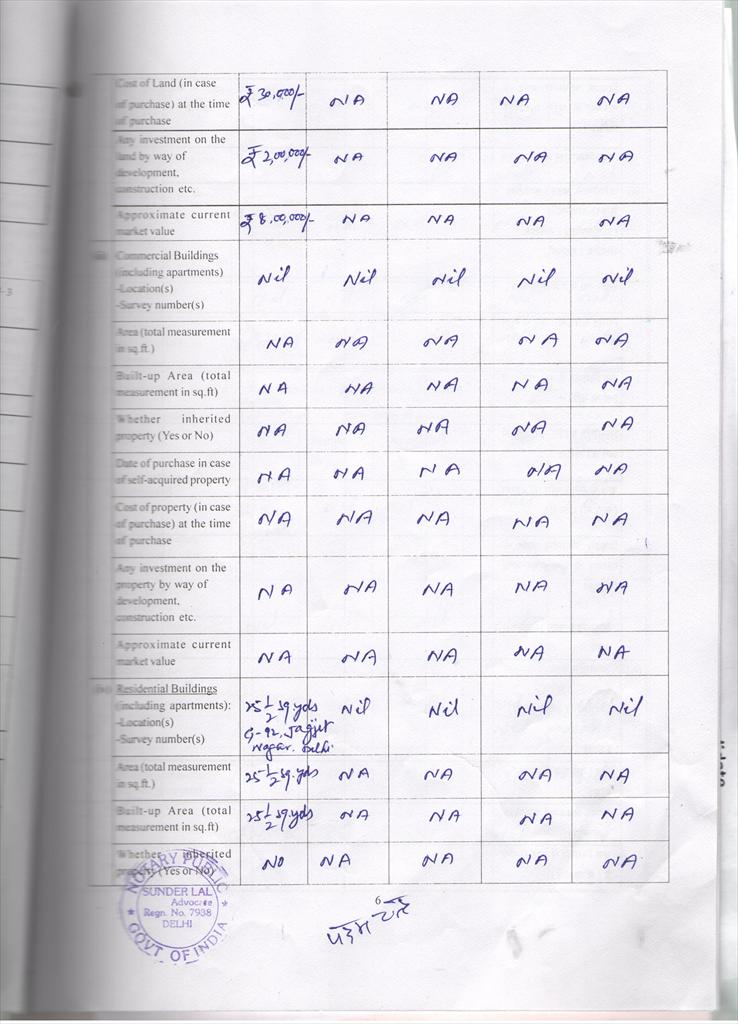 Cost of Land (in case of purchase) at the time of purchase ₹ 30,000/- NA NA NA NA
Any investment on the land by way of development, construction etc. ₹ 2,00,000/- NA NA NA NA
Approximate current market value ₹ 8,00,000/- NA NA NA NA
Commercial Buildings (including apartments) -Location(s) -Survey number(s) Nil Nil Nil Nil Nil
Area (total measurement in sq.ft.) NA NA NA NA NA
Built-up Area (total measurement in sq.ft) NA NA NA NA NA
Whether inherited property (Yes or No) NA NA NA NA NA
Date of purchase in case of self-acquired property NA NA NA NA NA
Cost of property (in case of purchase) at the time of purchase NA NA NA NA NA
Any investment on the property by way of development, construction etc. NA NA NA NA NA
Approximate current market value NA NA NA NA NA
Residential Buildings (including apartments): -Location(s) -Survey number(s) 25 1/2 sq.yds G-92, Jagjit Nagar. Delhi Nil Nil Nil Nil
Area (total measurement in sq.ft.) 25 1/2 sq.yds NA NA NA NA
Built-up Area (total measurement in sq.ft) 25 1/2 sq.yds NA NA NA NA
Whether inherited property (Yes or No) NO NA NA NA NA
NOTARY PUBLIC
SUNDER LAL
Advocate
Regn. No. 7938
DELHI
GOVT OF INDIA
6